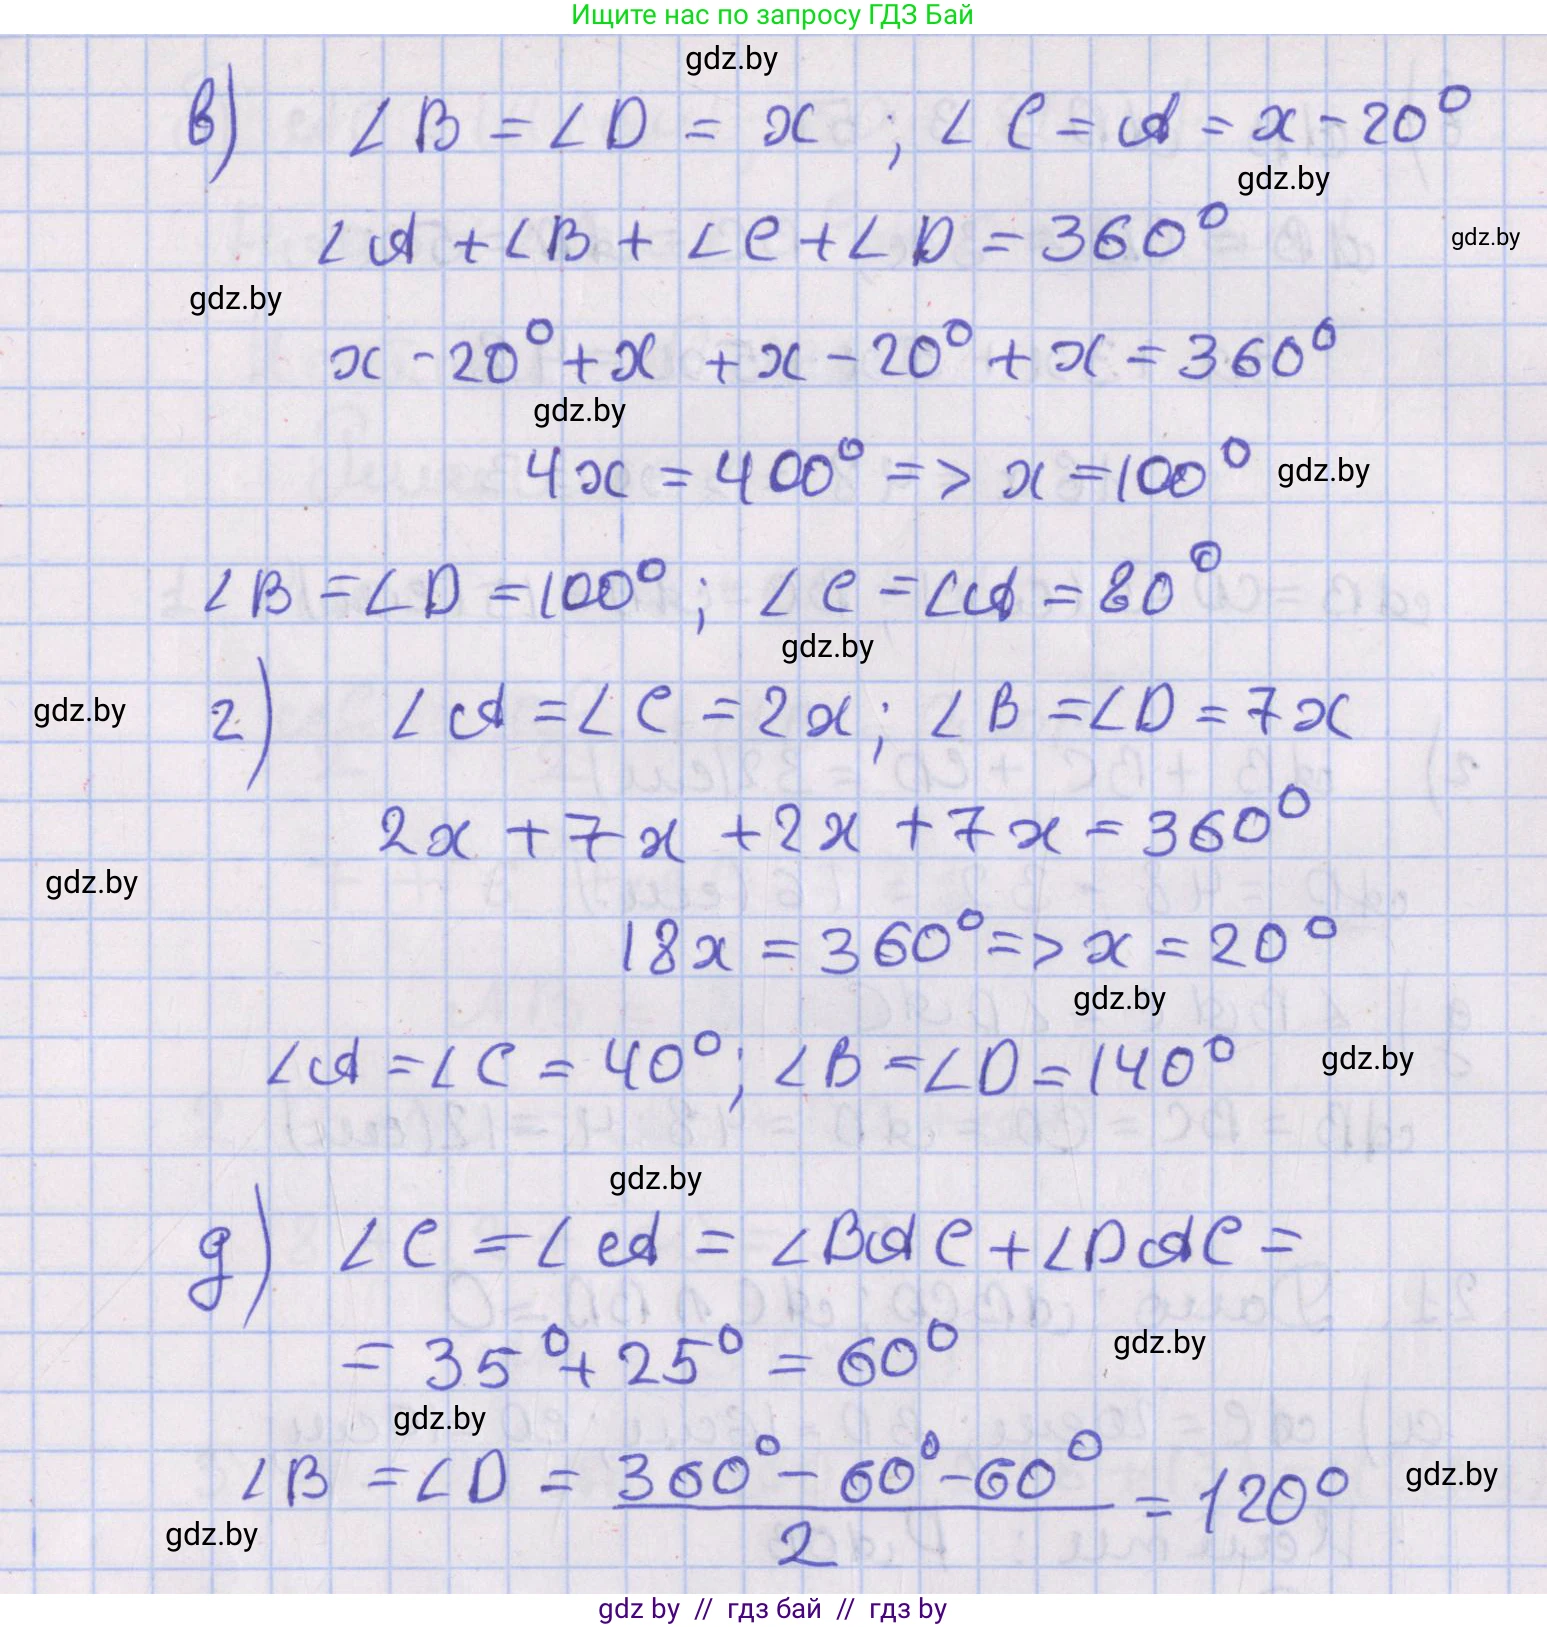 Ищите нас по запросу ГДЗ Бай
gdz.by
в) ∠B = ∠D = x ; ∠C = A = x - 20°
gdz.by
∠A + ∠B + ∠C + ∠D = 360°
gdz.by
gdz.by
x - 20° + x + x - 20° + x = 360°
gdz.by
4x = 400° => x = 100°
gdz.by
∠B = ∠D = 100° ; ∠C = ∠A = 80°
gdz.by
gdz.by
г) ∠A = ∠C = 2x ; ∠B = ∠D = 7x
2x + 7x + 2x + 7x = 360°
gdz.by
18x = 360° => x = 20°
gdz.by
∠A = ∠C = 40° ; ∠B = ∠D = 140°
gdz.by
gdz.by
д) ∠C = ∠A = ∠BAC + ∠DAC =
= 35° + 25° = 60°
gdz.by
gdz.by
∠B = ∠D = (360° - 60° - 60°) / 2 = 120°
gdz.by
gdz.by
gdz by // гдз бай // гдз by